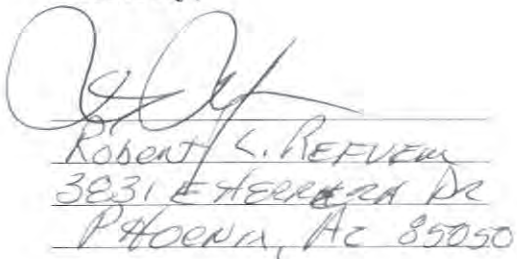 Robert L. Refvem
3831 E Herrera Dr
Phoenix, Az 85050